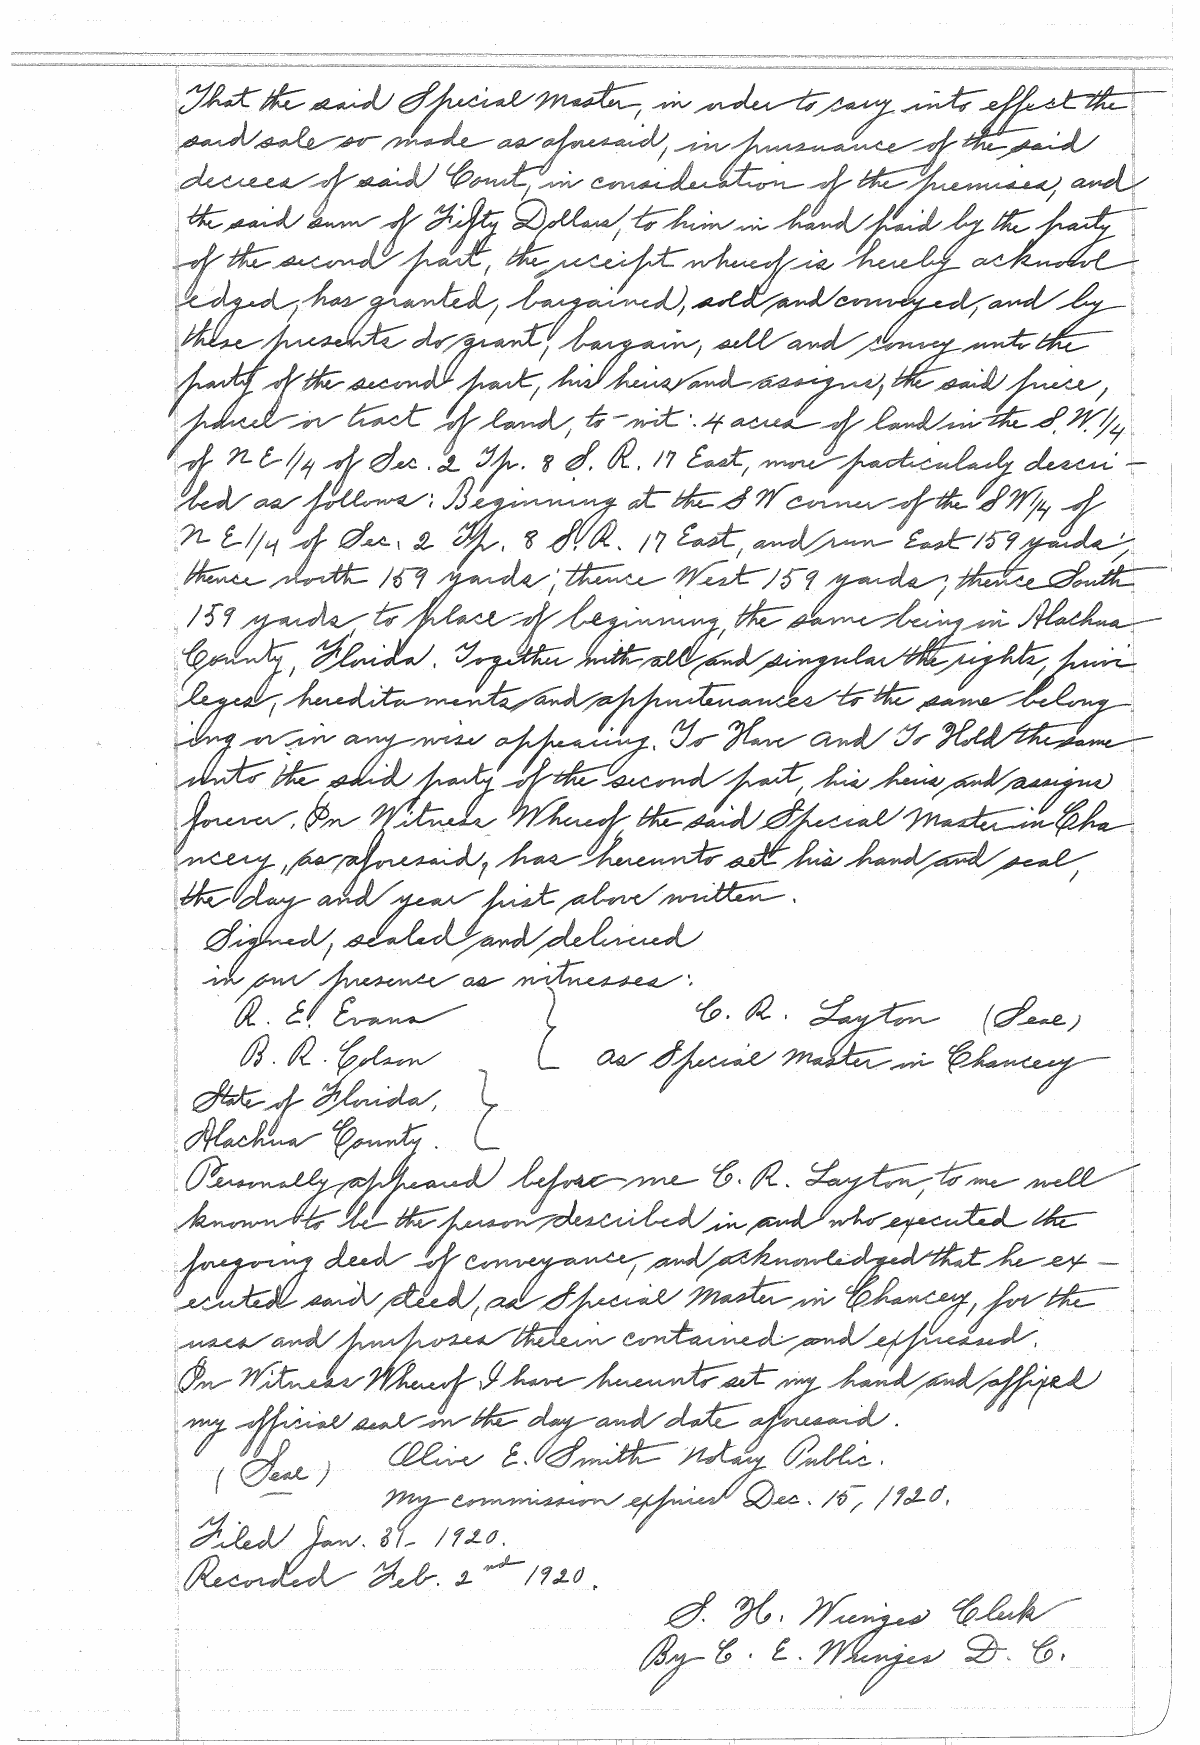 That the said Special Master, in order to cary into effect the
said sale so made as aforesaid, in pursuance of the said
decrees of said Court, in consideration of the premises, and
the said sum of Fifty Dollars, to him in hand paid by the party
of the second part, the receipt whereof is hereby acknowl
edged, has granted, bargained, sold and conveyed, and by
these presents do grant, bargain, sell and convey unto the
party of the second part, his heirs and assigns, the said piece,
parcel or tract of land, to-wit: 4 acres of land in the S.W. 1/4
of N E 1/4 of Sec. 2 Tp. 8 S. R. 17 East, more particularly descri-
bed as follows: Beginning at the S W corner of the S W 1/4 of
N E 1/4 of Sec. 2 Tp. 8 S. R. 17 East, and run East 159 yards;
thence north 159 yards; thence West 159 yards; thence South
159 yards, to place of beginning, the same being in Alachua
County, Florida. Together with all and singular the rights, privi
leges, hereditaments and appurtenances to the same belong
ing or in any wise appearing. To Have and To Hold the same
unto the said party of the second part, his heirs and assigns
forever. In Witness Whereof, the said Special Master in Cha
ncery, as aforesaid, has hereunto set his hand and seal,
the day and year first above written.
Signed, sealed and delivered
in our presence as witnesses:
R. E. Evans C. R. Layton (Seal)
B. R. Colson as Special Master in Chancery
State of Florida,
Alachua County.
Personally appeared before me C. R. Layton, to me well
known to be the person described in and who executed the
foregoing deed of conveyance, and acknowledged that he ex-
ecuted said deed, as Special Master in Chancery, for the
uses and purposes therein contained and expressed.
In Witness Whereof I have hereunto set my hand and affixed
my official seal on the day and date aforesaid.
(Seal) Olive E. Smith Notary Public.
My commission expires Dec. 15, 1920.
Filed Jan. 31- 1920.
Recorded Feb. 2nd 1920.
S. H. Wienges Clerk
By C. E. Wienges D. C.